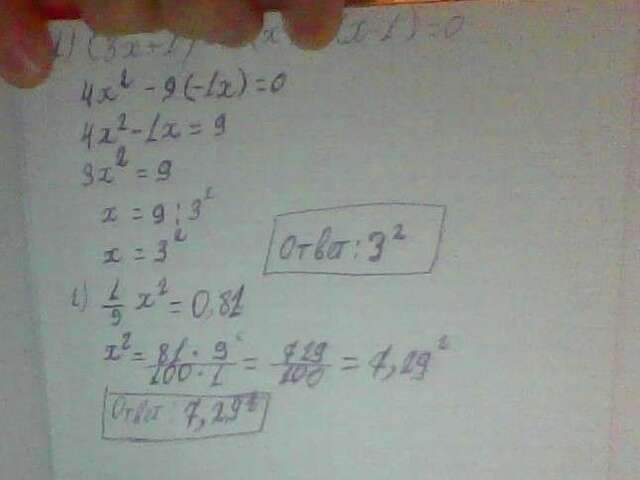 (3x+1)
4x² - 9(-1x) = 0
4x² - 1x = 9
3x² = 9
x = 9 : 3²
x = 3²
Ответ: 3²
1/9 x² = 0,81
x² = 81 · 9 / 100 · 1 = 729/100 = 7,29²
Ответ: 7,29²